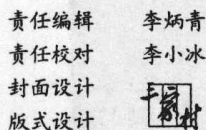 责任编辑 李炳青
责任校对 李小冰
封面设计
版式设计